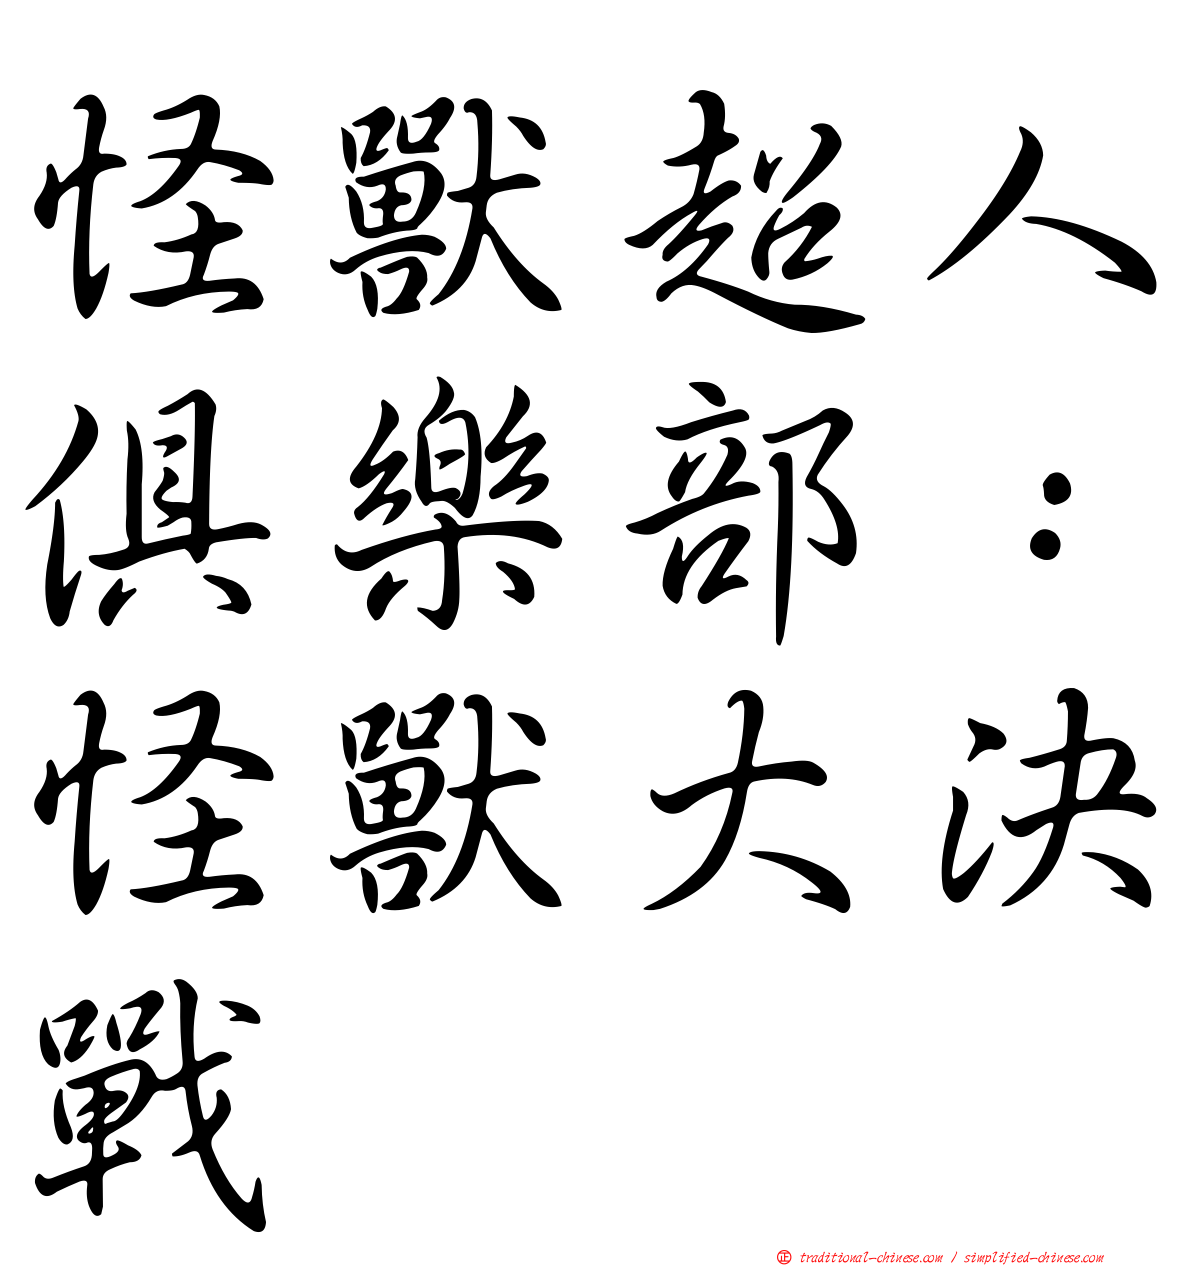 怪獸超人
俱樂部：
怪獸大決
戰
㊣ traditional-chinese.com / simplified-chinese.com